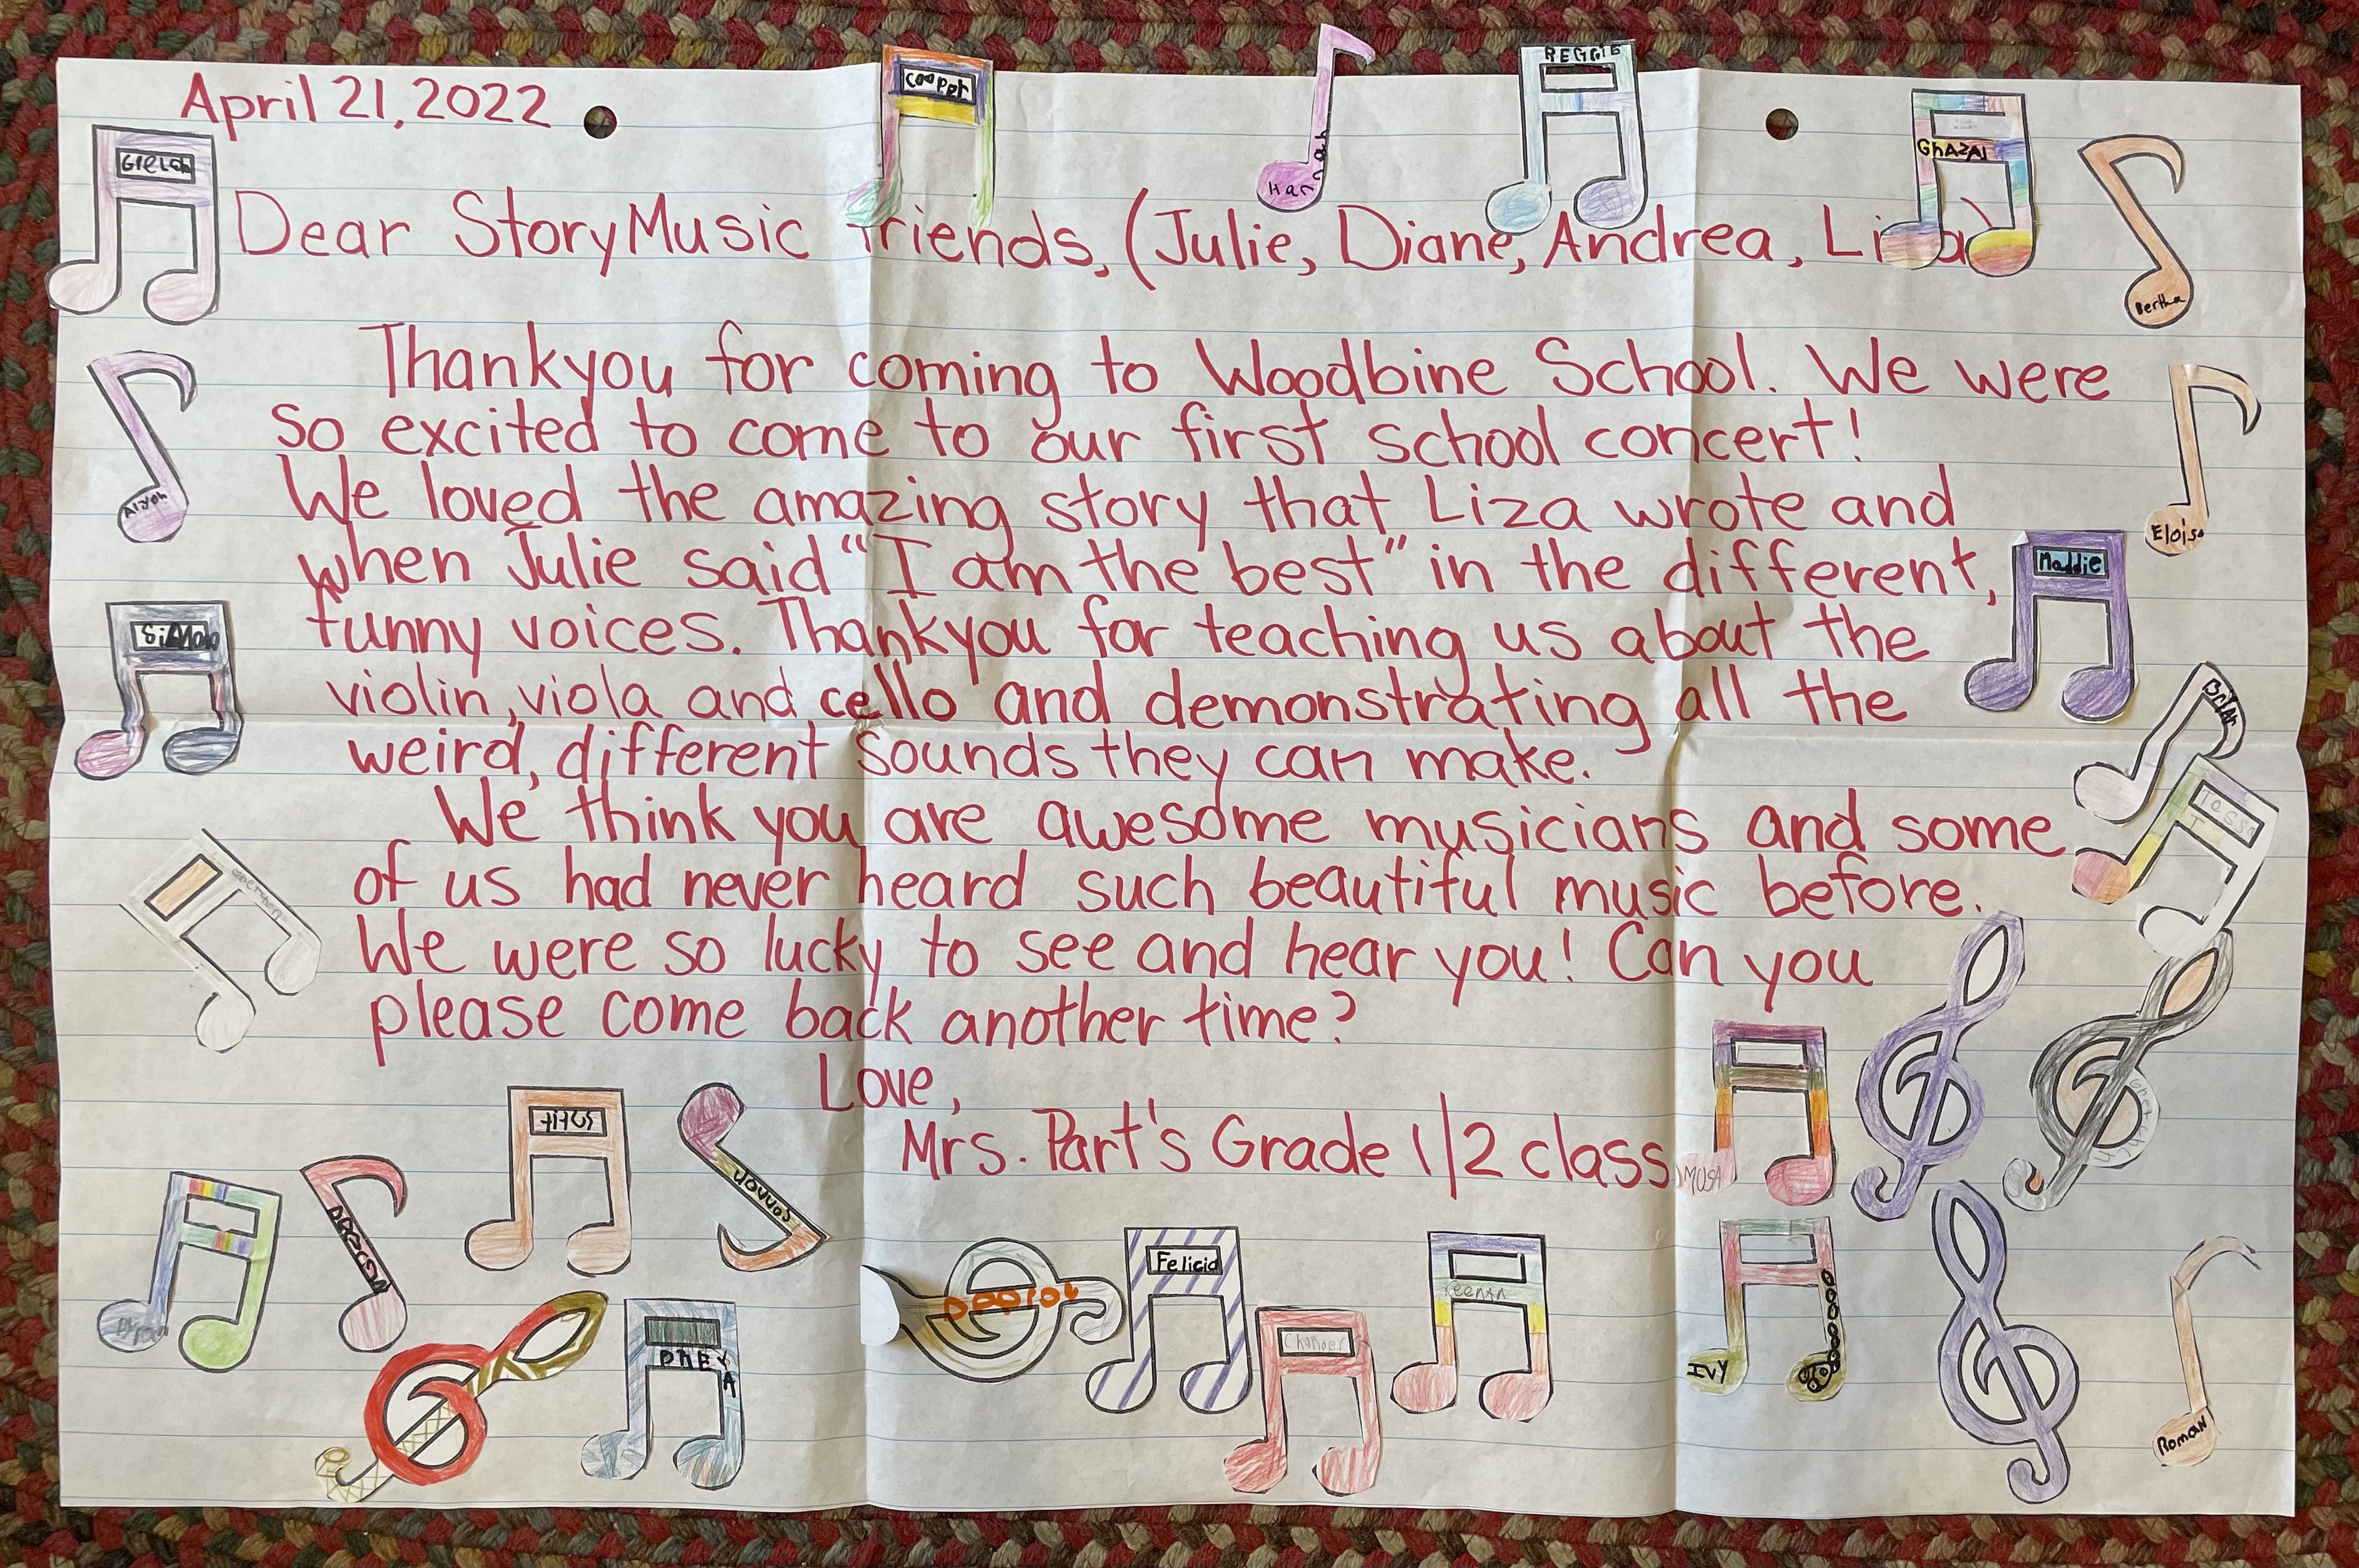 April 21, 2022
Cooper
Hannah
REGGIE
GhAZAl
Dear StoryMusic friends, (Julie, Diane, Andrea, Liza)
Bertha
Thankyou for coming to Woodbine School. We were
so excited to come to our first school concert!
We loved the amazing story that Liza wrote and
Eloise
when Julie said "I am the best" in the different,
Maddie
funny voices. Thankyou for teaching us about the
Simone
violin, viola and cello and demonstrating all the
Briar
weird, different sounds they can make.
Tessa
We think you are awesome musicians and some
of us had never heard such beautiful music before.
We were so lucky to see and hear you! Can you
please come back another time?
Love,
titUS
Mrs. Part's Grade 1/2 class
MUSA
Felicia
Keenan
Chander
IVY
ROMAN